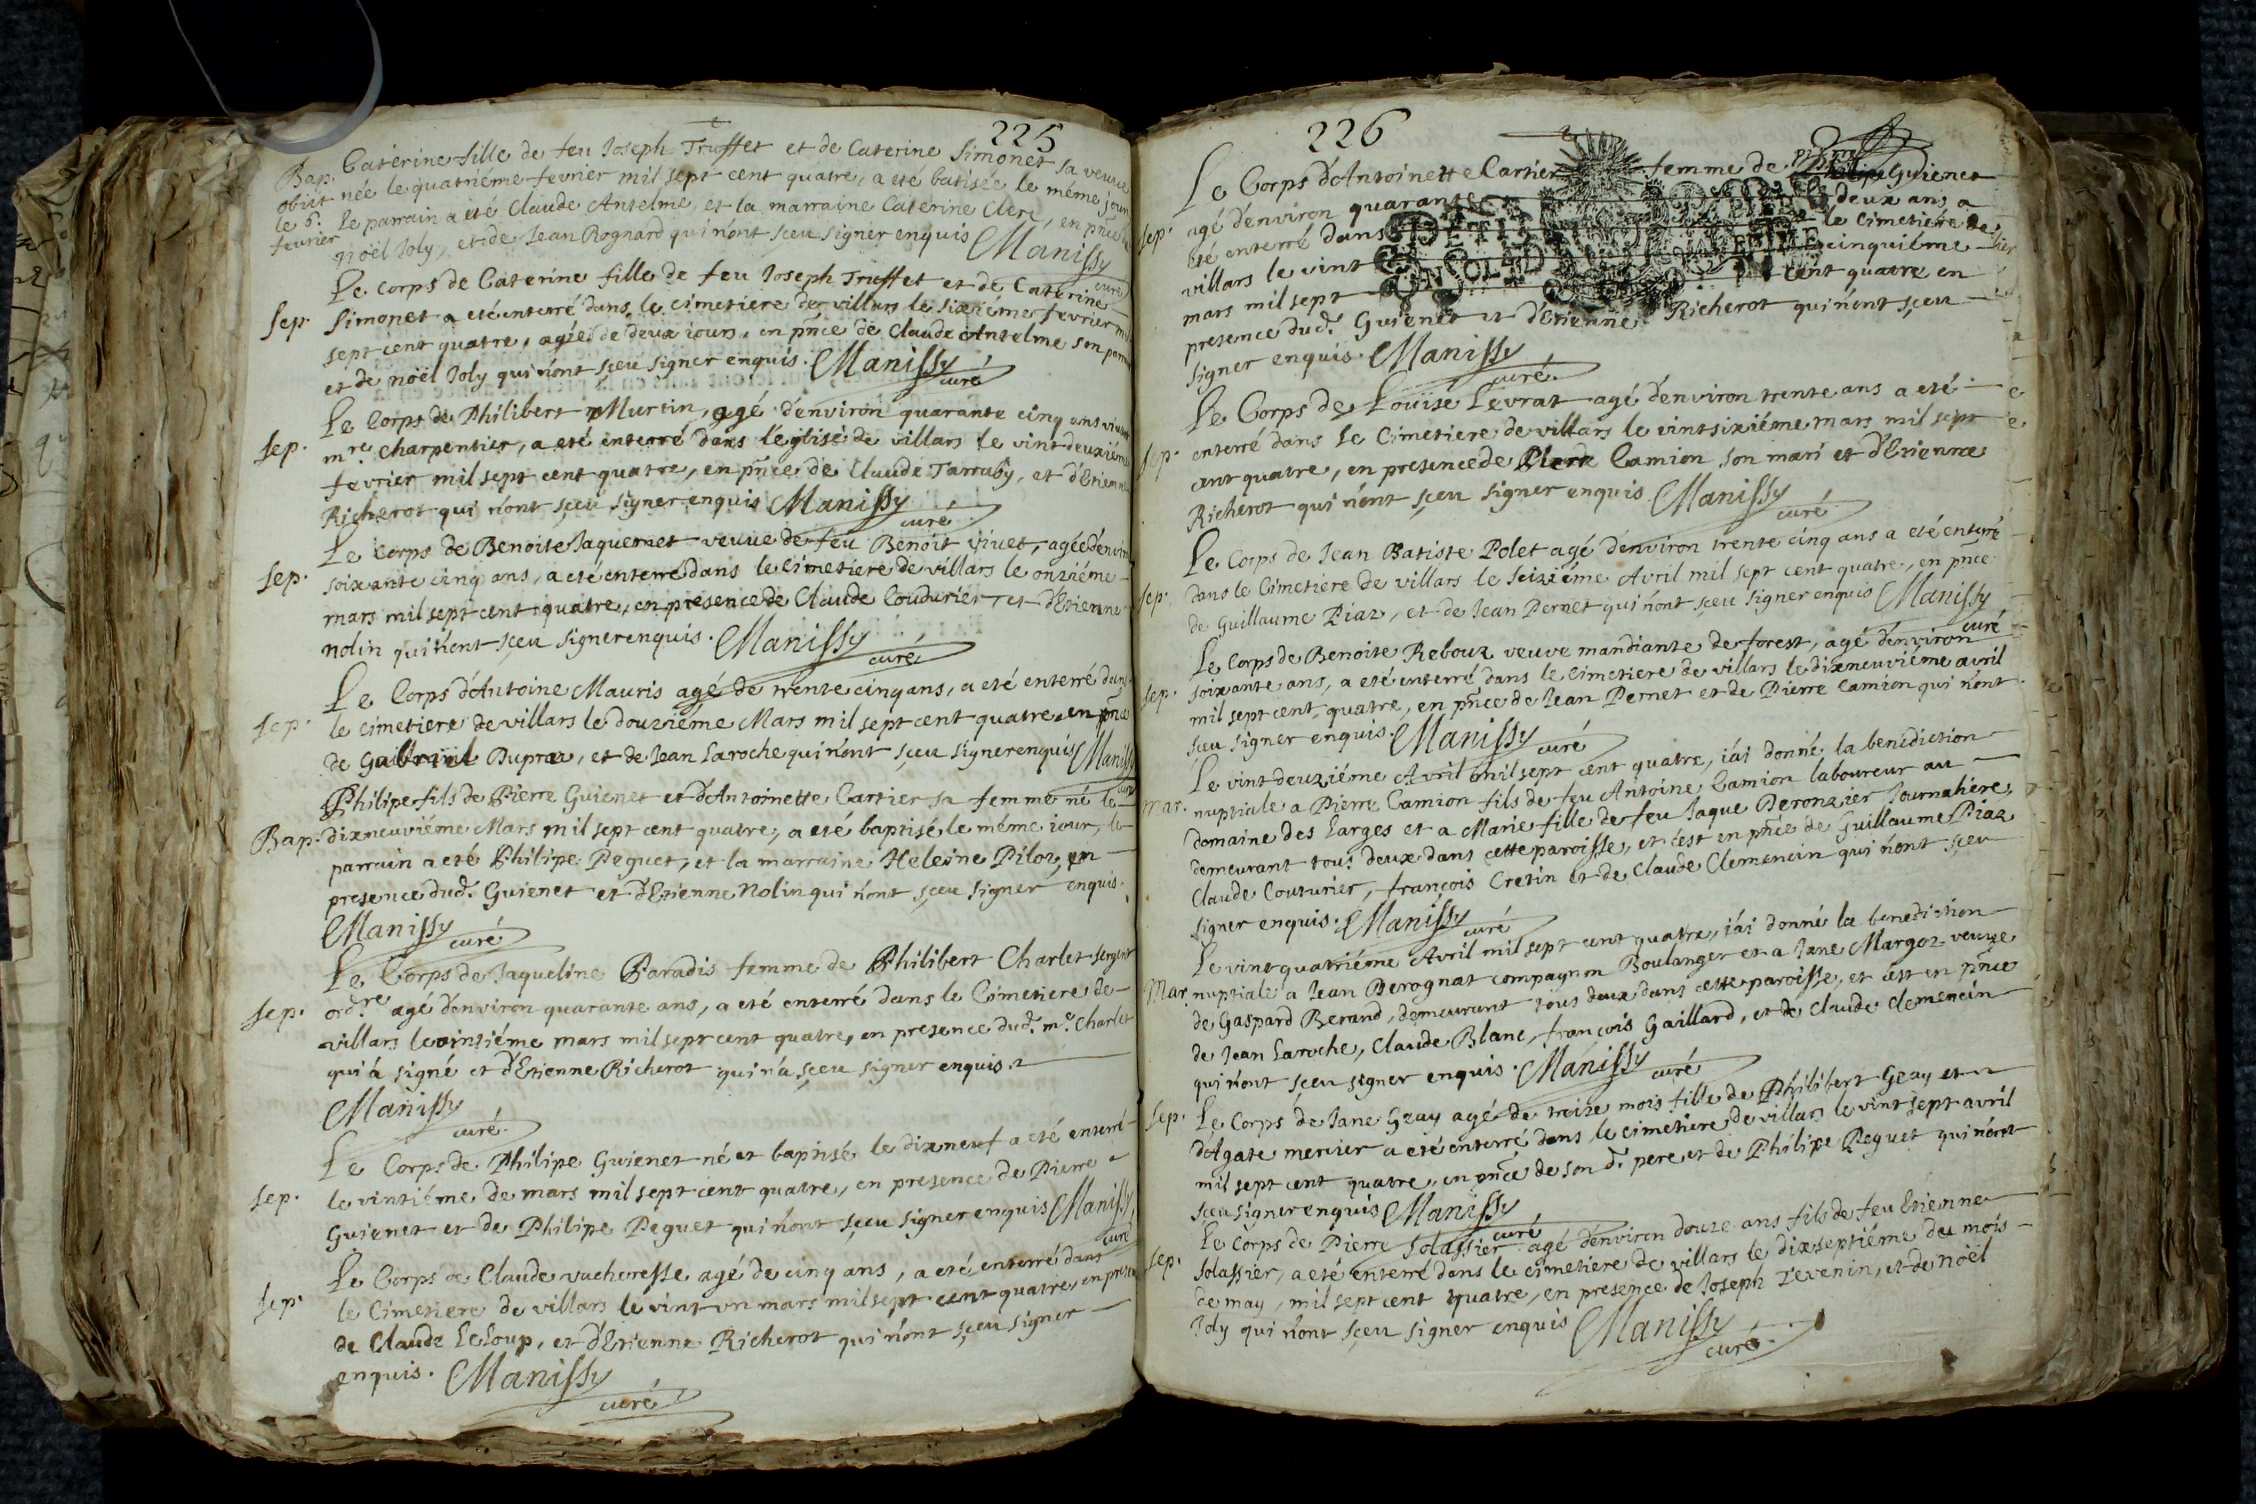 225
Bap. Caterine fille de feu Joseph Truffet et de Caterine Simonet sa veuve
obiit née le quatriéme fevrier mil sept cent quatre, a eté batisée le méme jour
le 6. le parrain a eté Claude Antelme et la marraine Caterine Clerc, en pñce de
fevrier noël Joly, et de Jean Rognard qui n'ont sçeu signer enquis Manissy
curé
Le corps de Caterine fille de feu Joseph Truffet et de Caterine
Sep. Simonet a eté enterré dans le cimetiere de villars le sixiéme fevrier mil
sept cent quatre, agée de deux iours, en pñce de Claude Antelme son parrain
et de noël Joly qui n'ont sçeu signer enquis. Manissy
curé
Le Corps de Philibert Murtin, agé d'environ quarante cinq ans vivant
sep. mre charpentier, a eté interré dans l'eglise de villars le vintdeuxiéme
fevrier mil sept cent quatre, en pñce de Claude Tarruby, et d'Etienne
Richerot qui n'ont sçeu signer enquis Manissy
curé
Le Corps de Benoite Jaquemet veuve de feu Benoit vivet, agée d'environ
sep. soixante cinq ans, a eté enterré dans le cimetiere de villars le onziéme
mars mil sept cent quatre, en presence de Claude Coudurier, et d'Etienne
nolin qui n'ont sçeu signer enquis. Manissy
curé
Le Corps d'Antoine Mauris agé de trente cinq ans, a eté enterré dans
sep. le cimetiere de villars le douziéme Mars mil sept cent quatre en pñce
de Gabriel Dupraz, et de Jean Laroche qui n'ont sçeu signer enquis Manissy
curé
Philipe fils de Pierre Guienet et d'Antoinette Cartier sa femme né le
Bap. dixneuviéme Mars mil sept cent quatre, a eté baptisé le méme iour, le
parrain a eté Philipe Peguet, et la marraine Heleine Piloz, en
presence dud. Guienet et d'Etienne Nolin qui n'ont sçeu signer enquis.
Manissy
curé
Le Corps de Jaqueline Paradis femme de Philibert Charlet sergent
sep. ord.re agé d'environ quarante ans, a eté enterré dans le Cimetiere de
villars le vintiéme mars mil sept cent quatre, en presence dud. me. Charlet
qui a signé et d'Etienne Richerot qui n'a sçeu signer enquis.
Manissy
curé.
Le Corps de Philipe Guienet né et baptisé le dixneuf a eté enterré
sep. le vintiéme de mars mil sept cent quatre, en presence de Pierre
Guienet et de Philipe Peguet qui n'ont sçeu signer enquis Manissy
curé
Le Corps de Claude vacheresse agé de cinq ans, a eté enterré dans
sep. le Cimetiere de villars le vint un mars mil sept cent quatre, en presence
de Claude LeLoup, et d'Etienne Richerot qui n'ont sçeu signer
enquis. Manissy
curé
226
Le Corps d'Antoinette Cartier femme de pierre Guienet
sep. agé d'environ quarante deux ans a
eté enterré dans le cimetiere de
villars le vint cinquiéme
mars mil sept cent quatre en
presence dud. Guienet et d'Etienne Richerot qui n'ont sçeu
signer enquis. Manissy
curé.
Le Corps de Loüise Levrat agé d'environ trente ans a eté
sep. enterré dans le Cimetiere de villars le vintsixiéme mars mil sept
cent quatre, en presence de Pierre Camion son mari et d'Etienne
Richerot qui n'ont sçeu signer enquis Manissy
curé
Le Corps de Jean Batiste Polet agé d'environ trente cinq ans a eté enterré
sep. dans le Cimetiere de villars le seiziéme Avril mil sept cent quatre, en pñce
de Guillaume Piaz, et de Jean Pernet qui n'ont sçeu signer enquis Manissy
curé
Le Corps de Benoite Reboux veuve mandiante de forest, agé d'environ
sep. soixante ans, a eté enterré dans le Cimetiere de villars le dixneuviéme avril
mil sept cent quatre, en pñce de Jean Pernet et de Pierre Camion qui n'ont
sçeu signer enquis. Manissy
curé
Le vintdeuxiéme Avril mil sept cent quatre, j'ai donné la benediction
mar. nuptiale a Pierre Camion fils de feu Antoine Camion laboureur au
domaine des Larges et a Marie fille de feu Jaque Deronzier Journaliere,
demeurant tous deux dans cette paroisse, et c'est en pñce de Guillaume Piaz
Claude Couturier, françois Cretin et de Claude Clemencin qui n'ont sçeu
signer enquis. Manissy
curé
Le vintquatriéme Avril mil sept cent quatre, j'ai donné la benediction
Mar. nuptiale a Jean Derognat compagnon Boulanger et a Jane Margoz veuve
de Gaspard Berand, demeurant tous deux dans cette paroisse, et c'est en pñce
de Jean Laroche, Claude Blanc, françois Gaillard, et de Claude Clemencin
qui n'ont sçeu signer enquis. Manissy
curé
sep. Le Corps de Jane Geay agé de treize mois fille de Philibert Geay et
d'Agate mercier a eté enterré dans le cimetiere de villars le vintsept avril
mil sept cent quatre, en pñce de son d. pere et de Philipe Peguet qui n'ont
sçeu signer enquis Manissy
curé
Le Corps de Pierre Solassier agé d'environ douze ans fils de feu Etienne
sep. Solassier, a eté enterré dans le cimetiere de villars le dixseptiéme du mois
de may, mil sept cent quatre, en presence de Joseph Tevenin, et de noël
Joly qui n'ont sçeu signer enquis Manissy
curé.